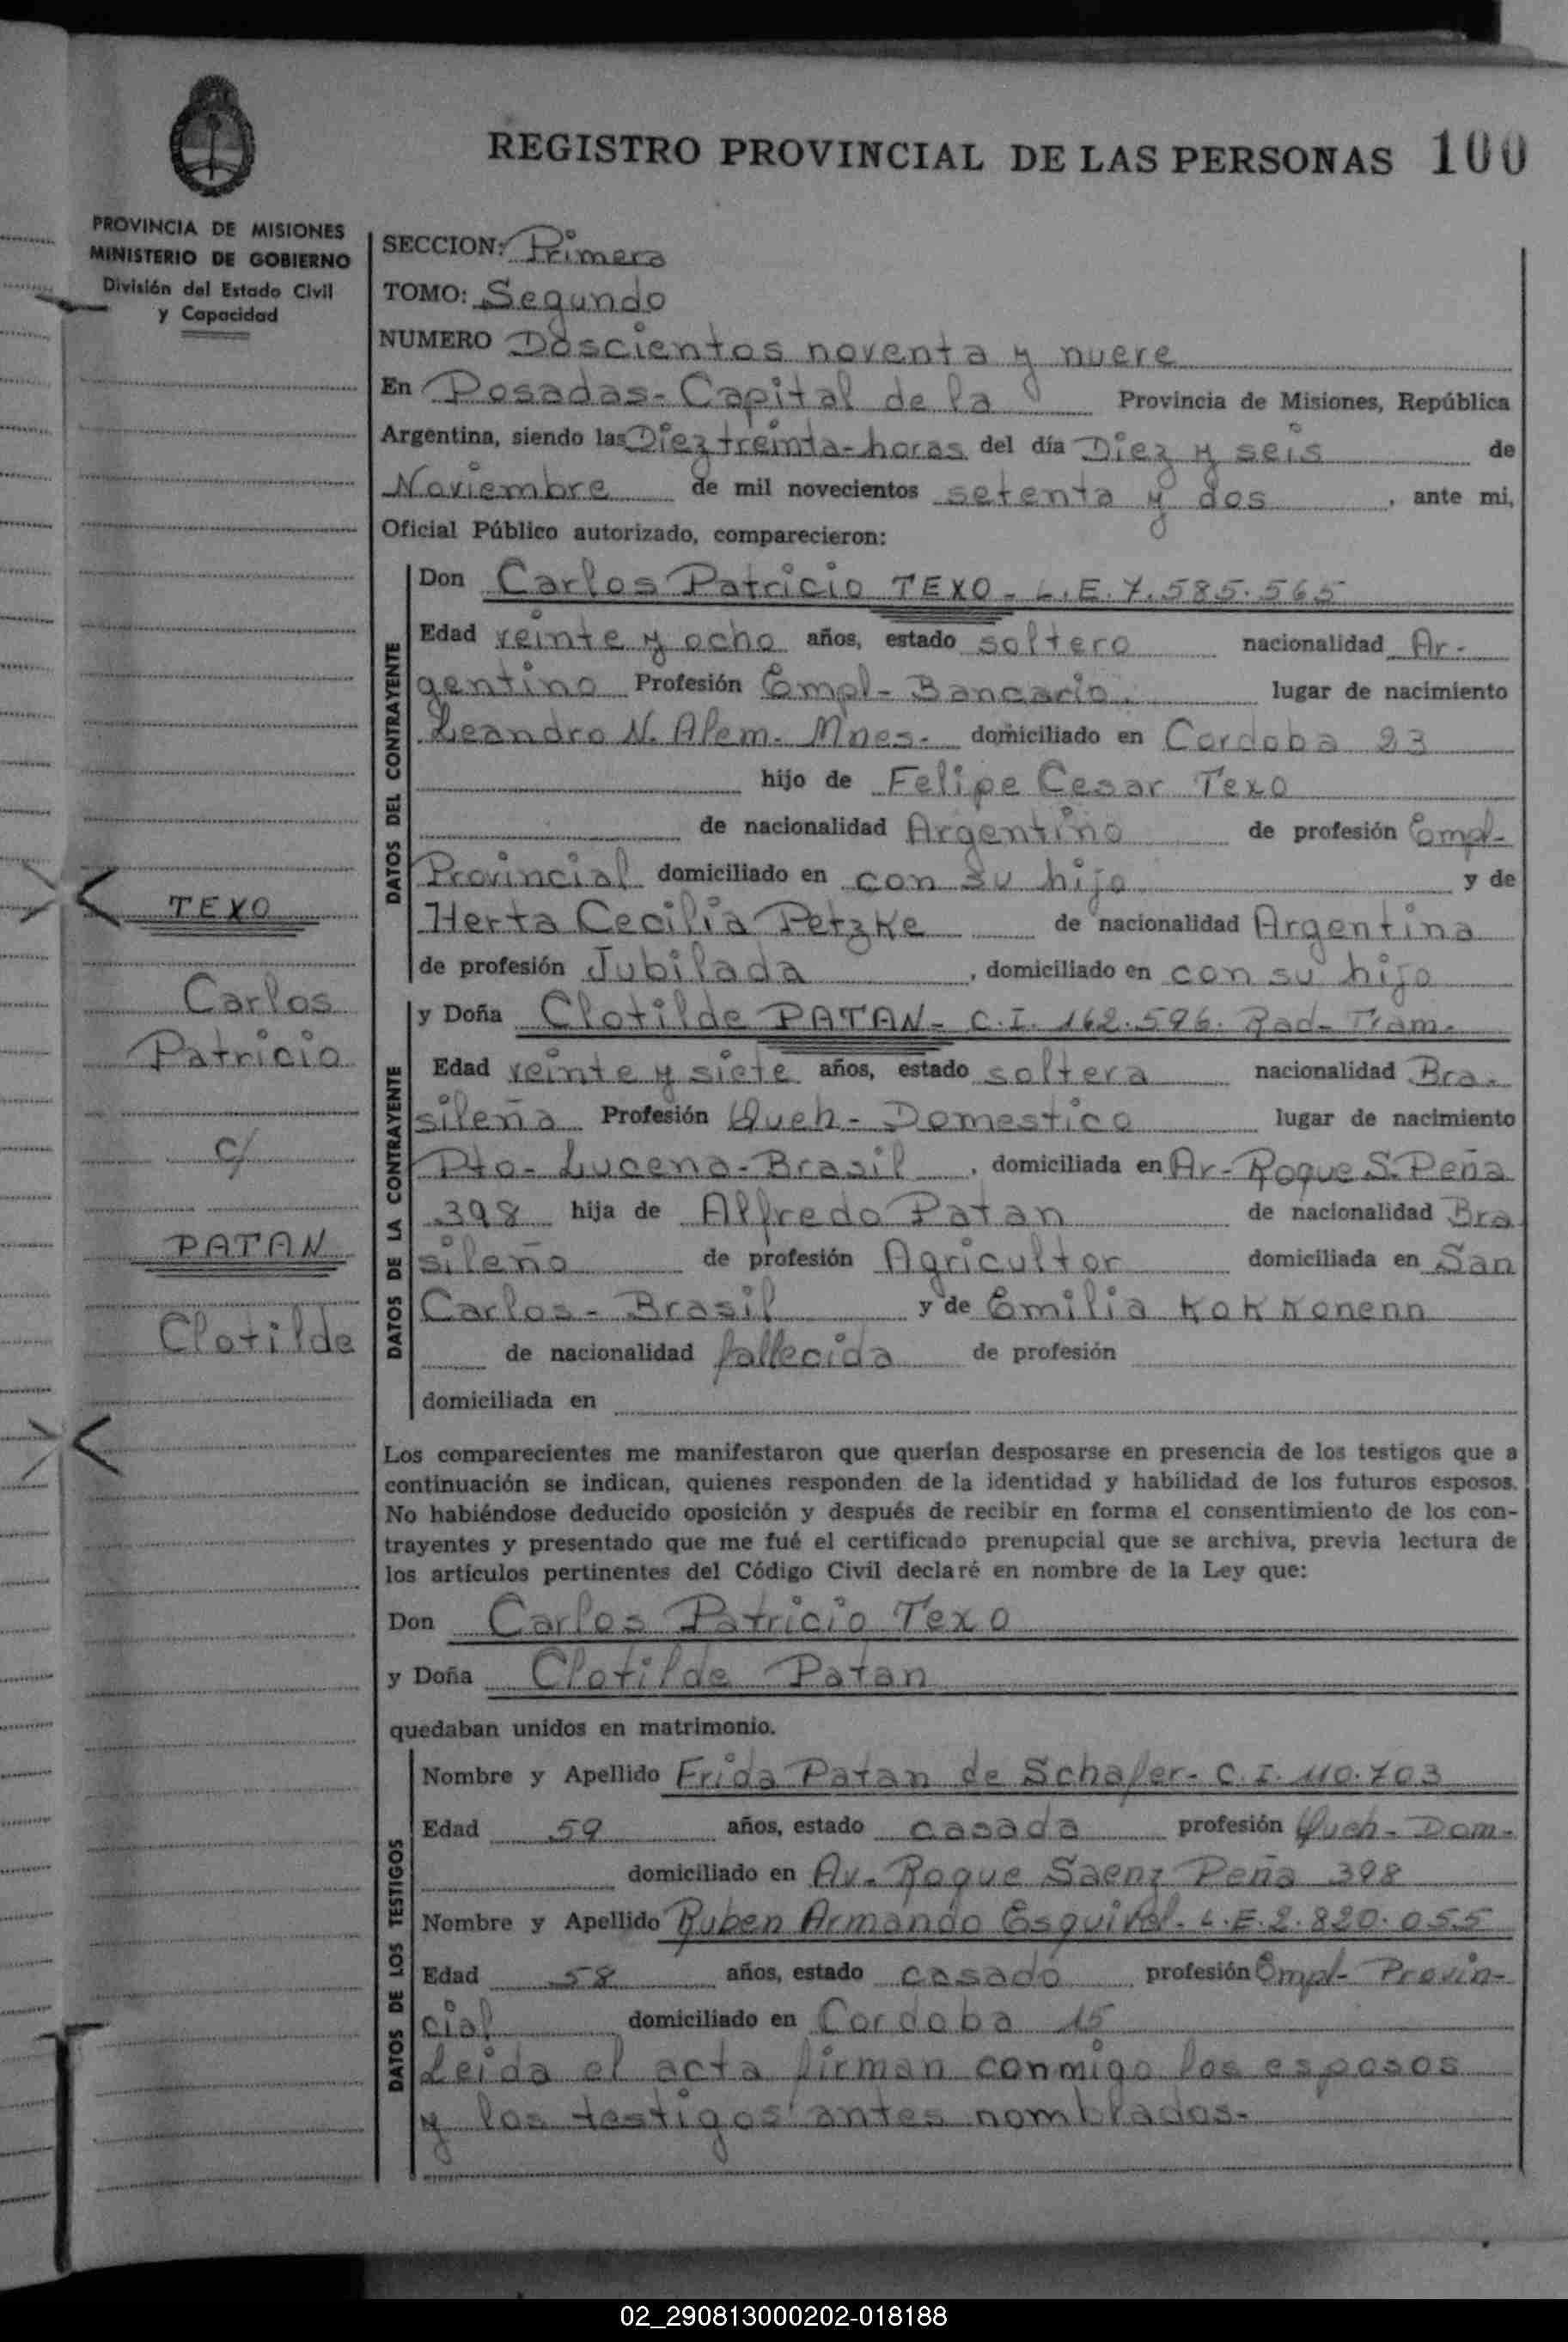 REGISTRO PROVINCIAL DE LAS PERSONAS 100
PROVINCIA DE MISIONES
MINISTERIO DE GOBIERNO
División del Estado Civil
y Capacidad
TEXO
Carlos
Patricio
c/
PATAN
Clotilde
SECCION: Primera
TOMO: Segundo
NUMERO Doscientos noventa y nueve
En Posadas - Capital de la Provincia de Misiones, República
Argentina, siendo las Diez treinta - horas del día Diez y seis de
Noviembre de mil novecientos setenta y dos, ante mi,
Oficial Público autorizado, comparecieron:
DATOS DEL CONTRAYENTE
Don Carlos Patricio TEXO - L.E. 7.585.565
Edad veinte y ocho años, estado soltero nacionalidad Ar-
gentino Profesión Empl - Bancario. lugar de nacimiento
Leandro N. Alem - Mnes - domiciliado en Cordoba 23
hijo de Felipe Cesar Texo
de nacionalidad Argentino de profesión Empl-
Provincial domiciliado en con su hijo y de
Herta Cecilia Petzke de nacionalidad Argentina
de profesión Jubilada, domiciliado en con su hijo
DATOS DE LA CONTRAYENTE
y Doña Clotilde PATAN - C.I. 162.596. Rad - Tram.
Edad veinte y siete años, estado soltera nacionalidad Bra-
sileña Profesión Queh - Domestico lugar de nacimiento
Pto - Lucena - Brasil, domiciliada en Av - Roque S. Peña
398 hija de Alfredo Patan de nacionalidad Bra
sileño de profesión Agricultor domiciliada en San
Carlos - Brasil y de Emilia Kokkonenn
de nacionalidad fallecida de profesión
domiciliada en
Los comparecientes me manifestaron que querían desposarse en presencia de los testigos que a
continuación se indican, quienes responden de la identidad y habilidad de los futuros esposos.
No habiéndose deducido oposición y después de recibir en forma el consentimiento de los con-
trayentes y presentado que me fué el certificado prenupcial que se archiva, previa lectura de
los artículos pertinentes del Código Civil declaré en nombre de la Ley que:
Don Carlos Patricio Texo
y Doña Clotilde Patan
quedaban unidos en matrimonio.
DATOS DE LOS TESTIGOS
Nombre y Apellido Frida Patan de Schafer - C.I. 110.703
Edad 59 años, estado casada profesión Queh - Dom -
domiciliado en Av - Roque Saenz Peña 398
Nombre y Apellido Ruben Armando Esquivel - L.E. 2.820.055
Edad 58 años, estado casado profesión Empl - Provin-
cial domiciliado en Cordoba 15
Leida el acta firman conmigo los esposos
y los testigos antes nombrados -
02_290813000202-018188